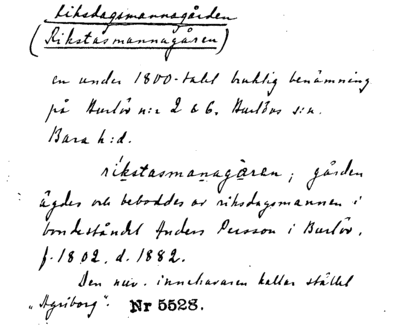 Riksdagsmannagården
(Rikstasmannagåren)
en under 1800-talet bruklig benämning
på Burlöv n:r 2 & 6, Burlövs s:n.
Bara h:d.
rikstasmanagåren; gården
ägdes och beboddes av riksdagsmannen i
bondeståndet Anders Persson i Burlöv,
f. 1802. d. 1882.
Den nuv. innehavaren kallar stället
"Agriborg". Nr 5528.